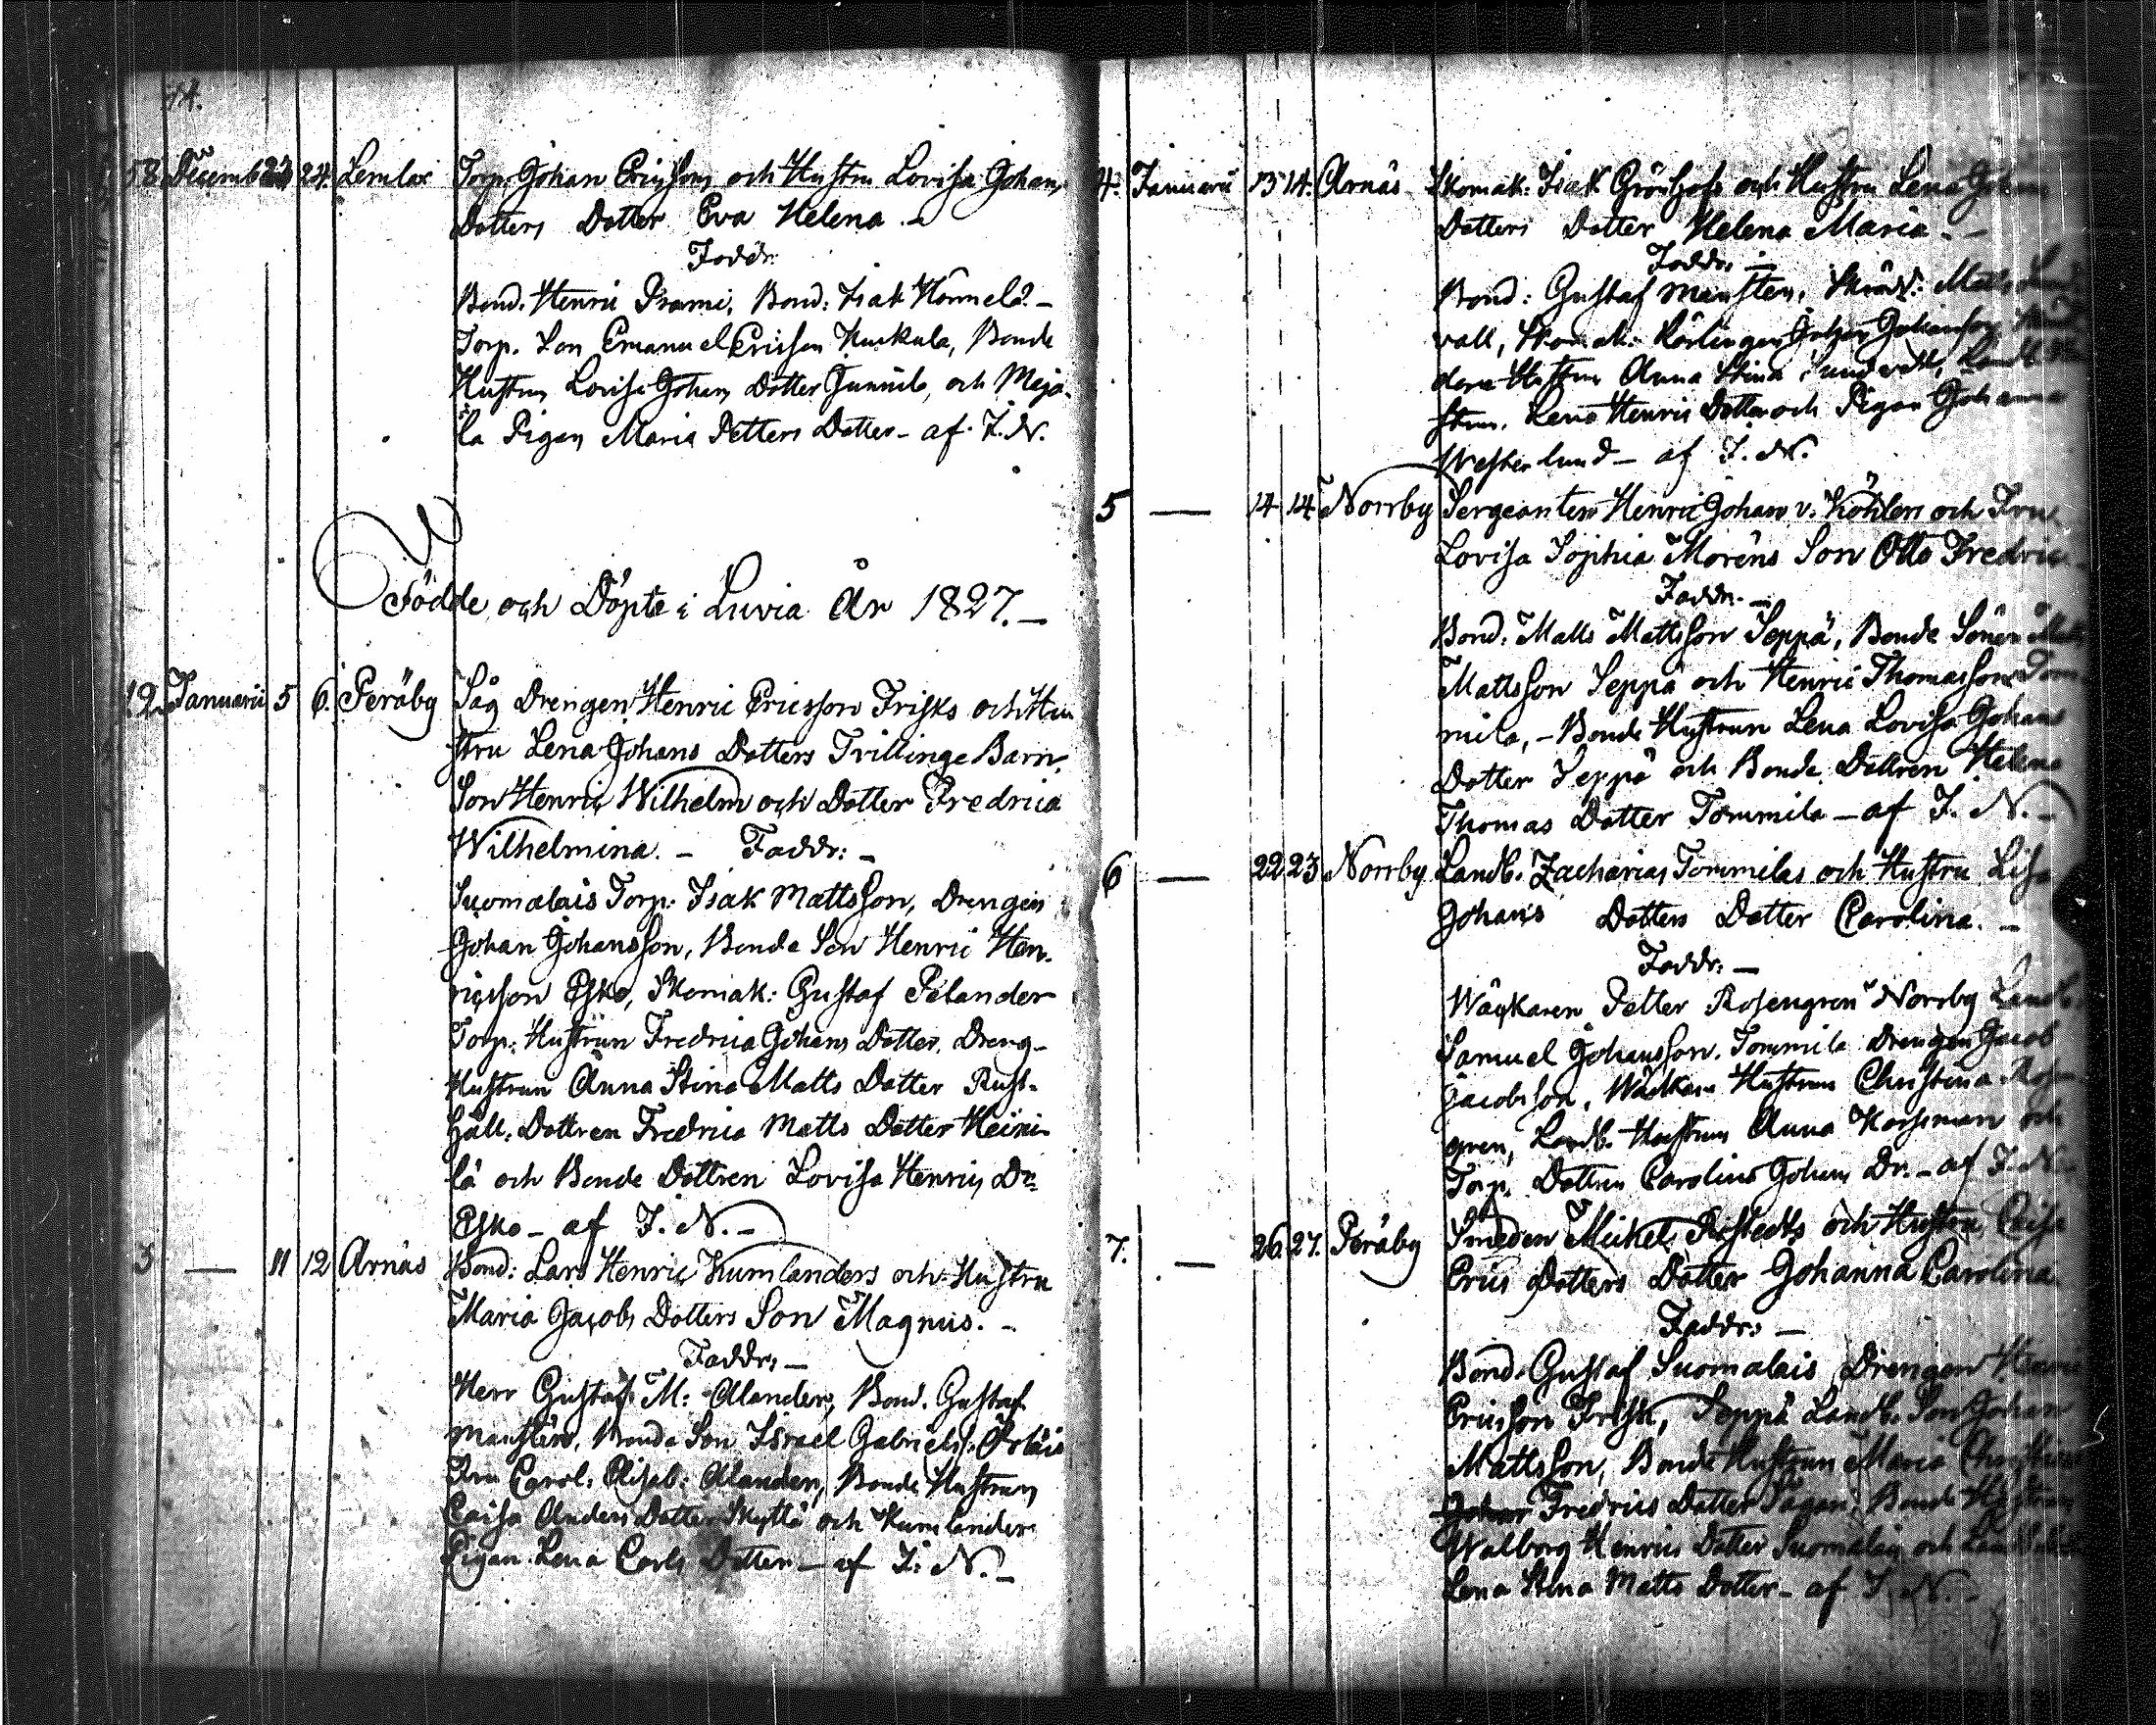 14.
58. Decemb 23 24. Lemlax Torp. Johan Ericssons och Hustru Lovisa Johans
Dotters Dotter Eva Helena.-
Faddr:
Bond. Henric Prami, Bond: Isak Hommelå.-
Torp. Son Emanuel Ericsson Kuckula, Bonde
Hustrun Lovisa Johans Dotter Junnila, och Meja-
la Pigan Maria Petters Dotter - af I. N.
Födde och Döpte i Luvia År 1827.-
1 2. Januarii 5 6. Peräby Såg Drengen Henric Ericsson Frisks och Hu
stru Lena Johans Dotters Tvillinge Barn.
Son Henric Wilhelm och Dotter Fredrica
Wilhelmina. - Faddr: -
Suomalais Torp. Isak Mattsson, Drengen
Johan Johansson, Bonde Son Henric Hen-
ricsson Esko, Skomak: Gustaf Pelander
Torp: Hustrun Fredrica Johans Dotter, Dreng-
Hustrun Anna Stina Matts Dotter Rust-
håll. Dottren Fredrica Matts Dotter Heini-
lä och Bonde Dottren Lovisa Henrics Dr
Esko - af I. N. -
3 — 11 12 Arnäs Bond: Lars Henric Kumlanders och Hustru
Maria Jacobs Dotters Son Magnus. -
Faddr: -
Herr Gustaf M: Alander, Bond. Gustaf
Mansten, Bonde Son Israel Gabrielss.
Fru Carol: Elisab: Alander, Bonde Hustrun
Caisa Anders Dotter Skyttä och Kumlanders
Pigan Lena Carls Dotter - af I. N. -
4. Januarii 13 14. Arnäs Skomak: Isak Grönhofs och Hustru Lena Johans
Dotters Dotter Helena Maria. -
Faddr: -
Bond: Gustaf Mansten, Skräd: Matts Sund
vall, Skomak: Lärlingen Johan Johansson
dare Hustrun Anna Stina Sundvall, Landb. Hu
strun. Lena Henrics Dotter och Pigan Johanna
Westerlund - af I. N.
5 — 14 14 Norrby Sergeanten Henric Johan v. Köhlers och Fru
Lovisa Sophia Moréns Son Otto Fredric
Faddr: -
Bond. Matts Mattsson Seppä, Bonde Sönen
Mattsson Seppä och Henric Thomasson Tom
mila, - Bonde Hustrun Lena Lovisa Johans
Dotter Seppä och Bonde Dottren Helena
Thomas Dotter Tommila - af I. N. -
6 — 22 23 Norrby Landb. Zacharias Tommilas och Hustru Lisa
Johans Dotters Dotter Carolina. -
Faddr: -
Wäckaren Petter Rosengren Norrby Landb.
Samuel Johansson. Tommila Drengen Jacob
Jacobsson, Wäckare Hustrun Christina Rosen
gren, Landb. Hustrun Anna Korsman och
Torp. Dottren Carolina Johans Dr. - af I. N.
7. — 26. 27. Peräby Smeden Michel och Hustru Caisa
Erics Dotters Dotter Johanna Carolina
Faddr: -
Bond. Gustaf Suomalais, Drengen Henric
Ericsson Frisk, Seppä Landb. Son Johan
Mattsson, Bonde Hustrun Maria Christina
Johans Fredrics Dotter Pågan, Bonde Hustrun
Walborg Henrics Dotter Suomalais och
Lena Stina Matts Dotter - af I. N. -